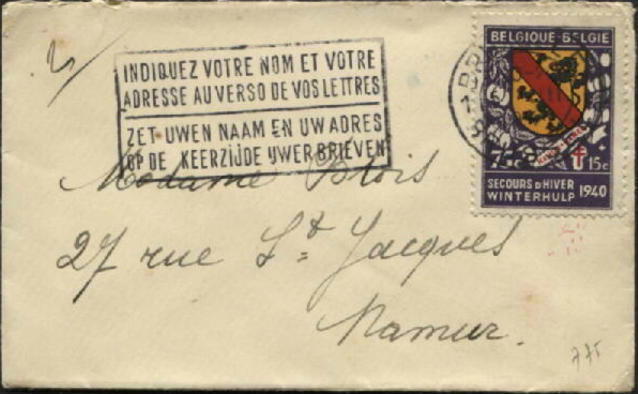 INDIQUEZ VOTRE NOM ET VOTRE
ADRESSE AU VERSO DE VOS LETTRES
ZET UWEN NAAM EN UW ADRES
OP DE KEERZIJDE UWER BRIEVEN
BELGIQUE-BELGIE
75c
15c
SECOURS D'HIVER
WINTERHULP 1940
Madame Blois
27 rue St Jacques
Namur.
775